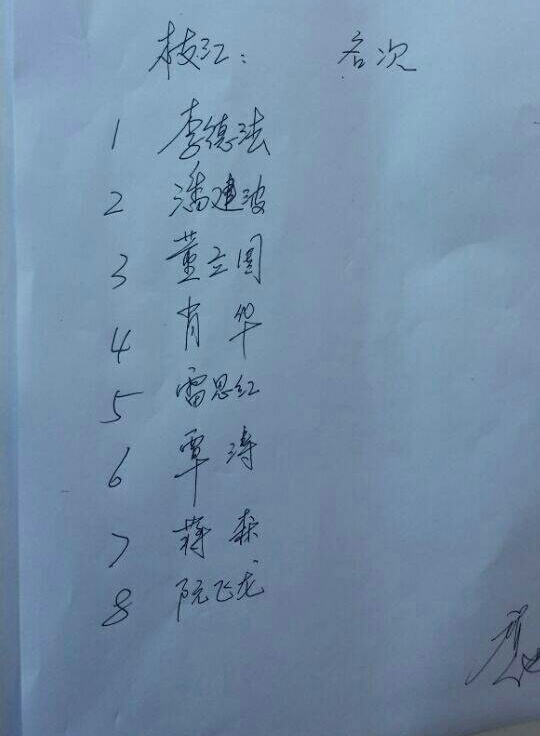 枝江: 名次
1 李德法
2 潘建波
3 董立国
4 肖华
5 雷思红
6 覃涛
7 蒋森
8 阮飞龙